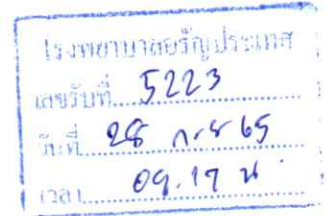 โรงพยาบาลอรัญประเทศ
เลขรับที่ 5223
วันที่ 28 ก.ย 65
เวลา 09.17 น